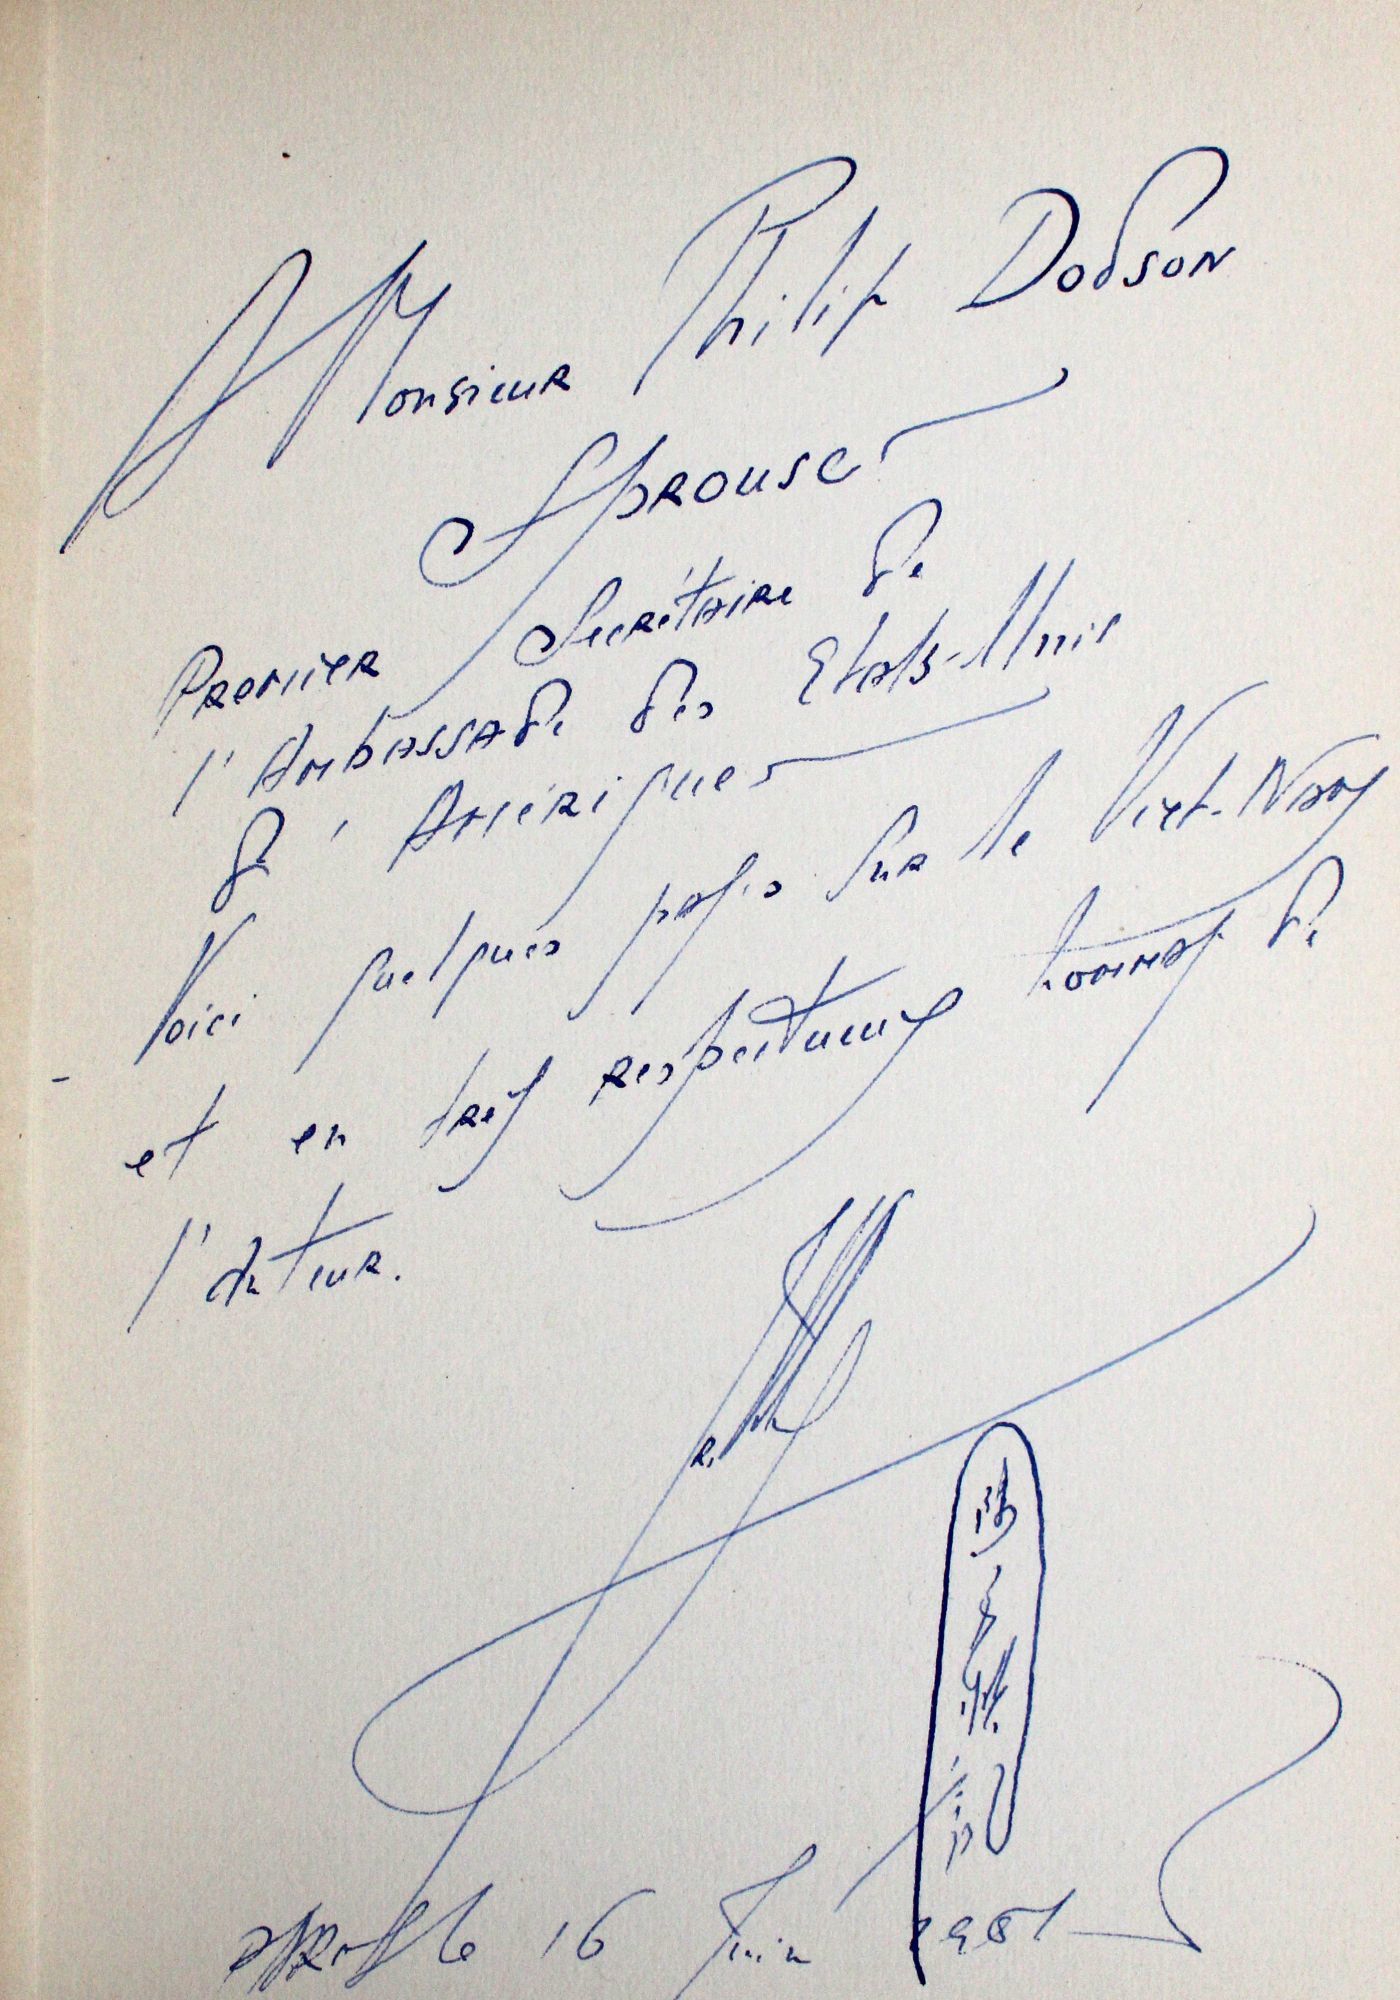 A Monsieur Philip Dodson
Sprouse
Premier Secrétaire de
l'Ambassade des Etats-Unis
d'Amérique
Voici quelques pages sur le Viet-Nam
et en très respectueux hommage de
l'Auteur.
16 Juin 1951